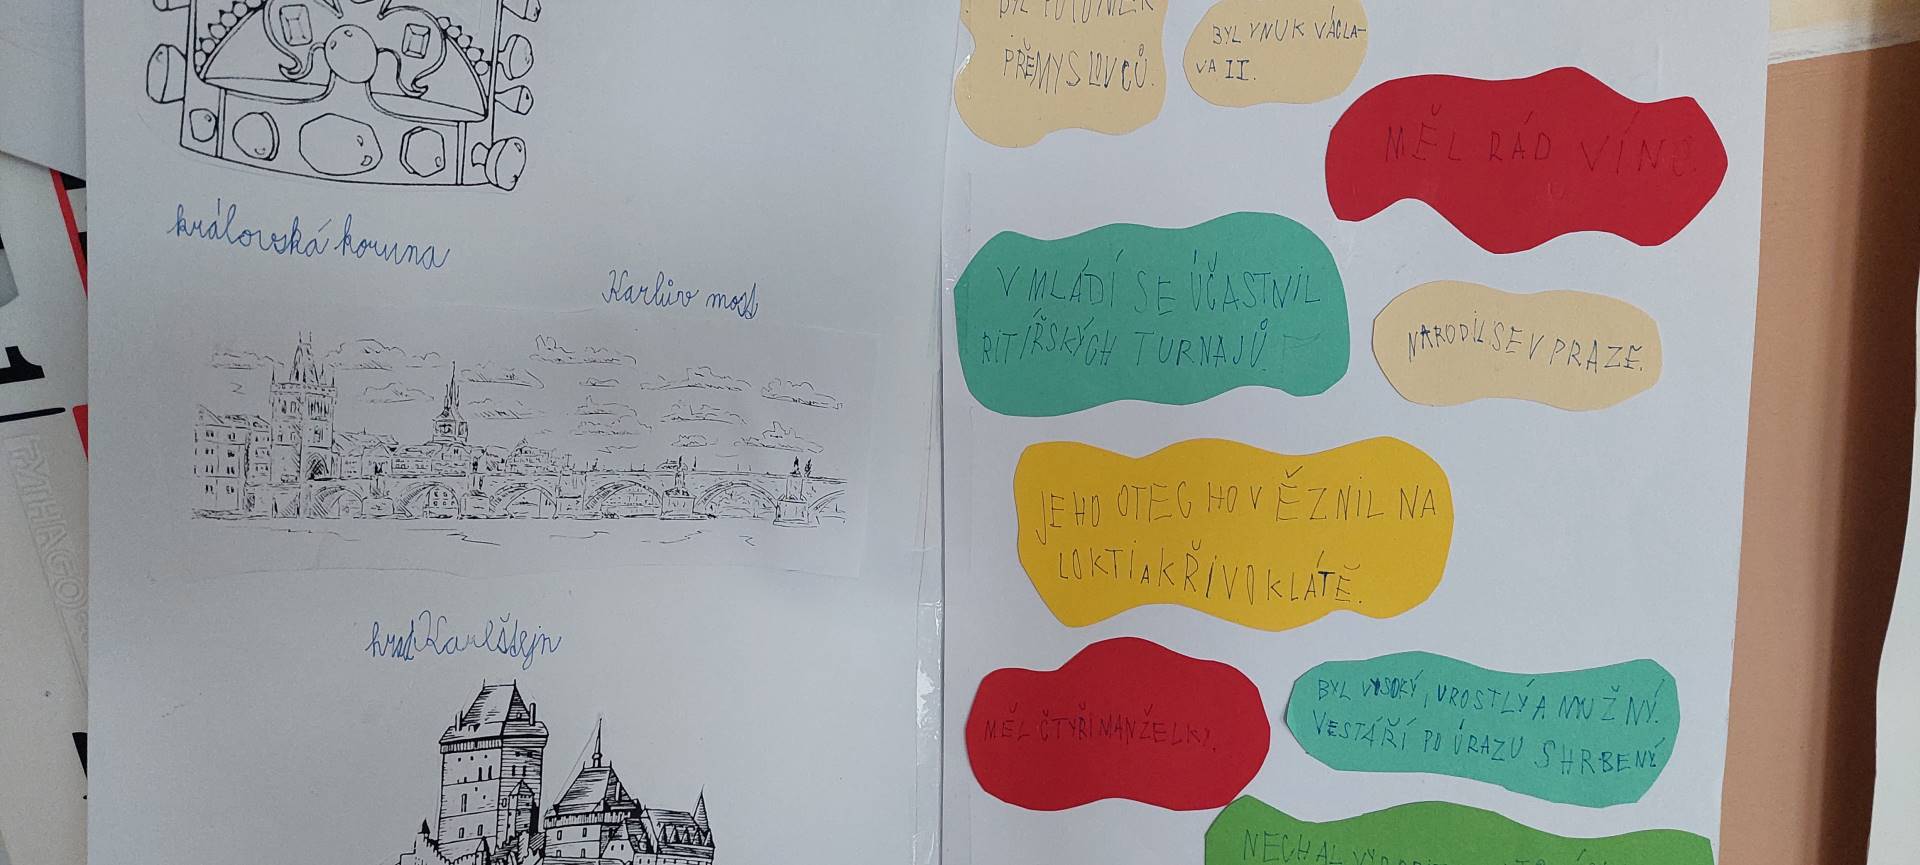 královská koruna
Karlův most
hrad Karlštejn
PŘEMYSLOVCŮ.
BYL VNUK VÁCLA-
VA II.
MĚL RÁD VÍNO.
V MLÁDÍ SE ÚČASTNIL
RITÍŘSKÝCH TURNAJŮ.
NARODIL SE V PRAZE.
JEHO OTEC HO VĚZNIL NA
LOKTI A KŘIVOKLÁTĚ.
MĚL ČTYŘI MANŽELKY.
BYL VYSOKÝ, UROSTLÝ A MUŽNÝ.
VE STÁŘÍ PO ÚRAZU SHRBENÝ
NECHAL